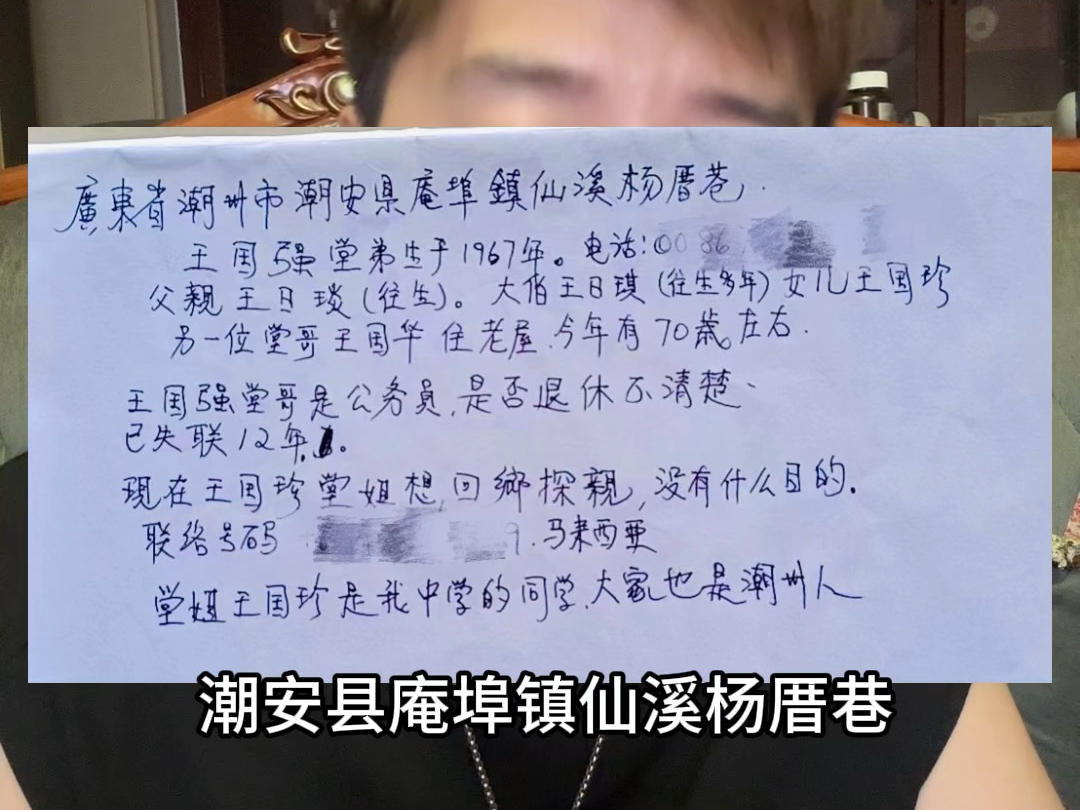 廣東省潮州市潮安県庵埠鎮仙溪杨厝巷,
王国强堂弟生于1967年。电话:0086
父親王日琰(往生)。大伯王日琪(往生多年)女儿王国珍
另一位堂哥王国华住老屋.今年有70歳左右.
王国强堂哥是公务员,是否退休不清楚、
已失联12年.。
現在王国珍堂姐想回鄉探親,没有什么目的.
联络号码 9.马来西亜
堂姐王国珍是我中学的同学.大家也是潮州人
潮安县庵埠镇仙溪杨厝巷